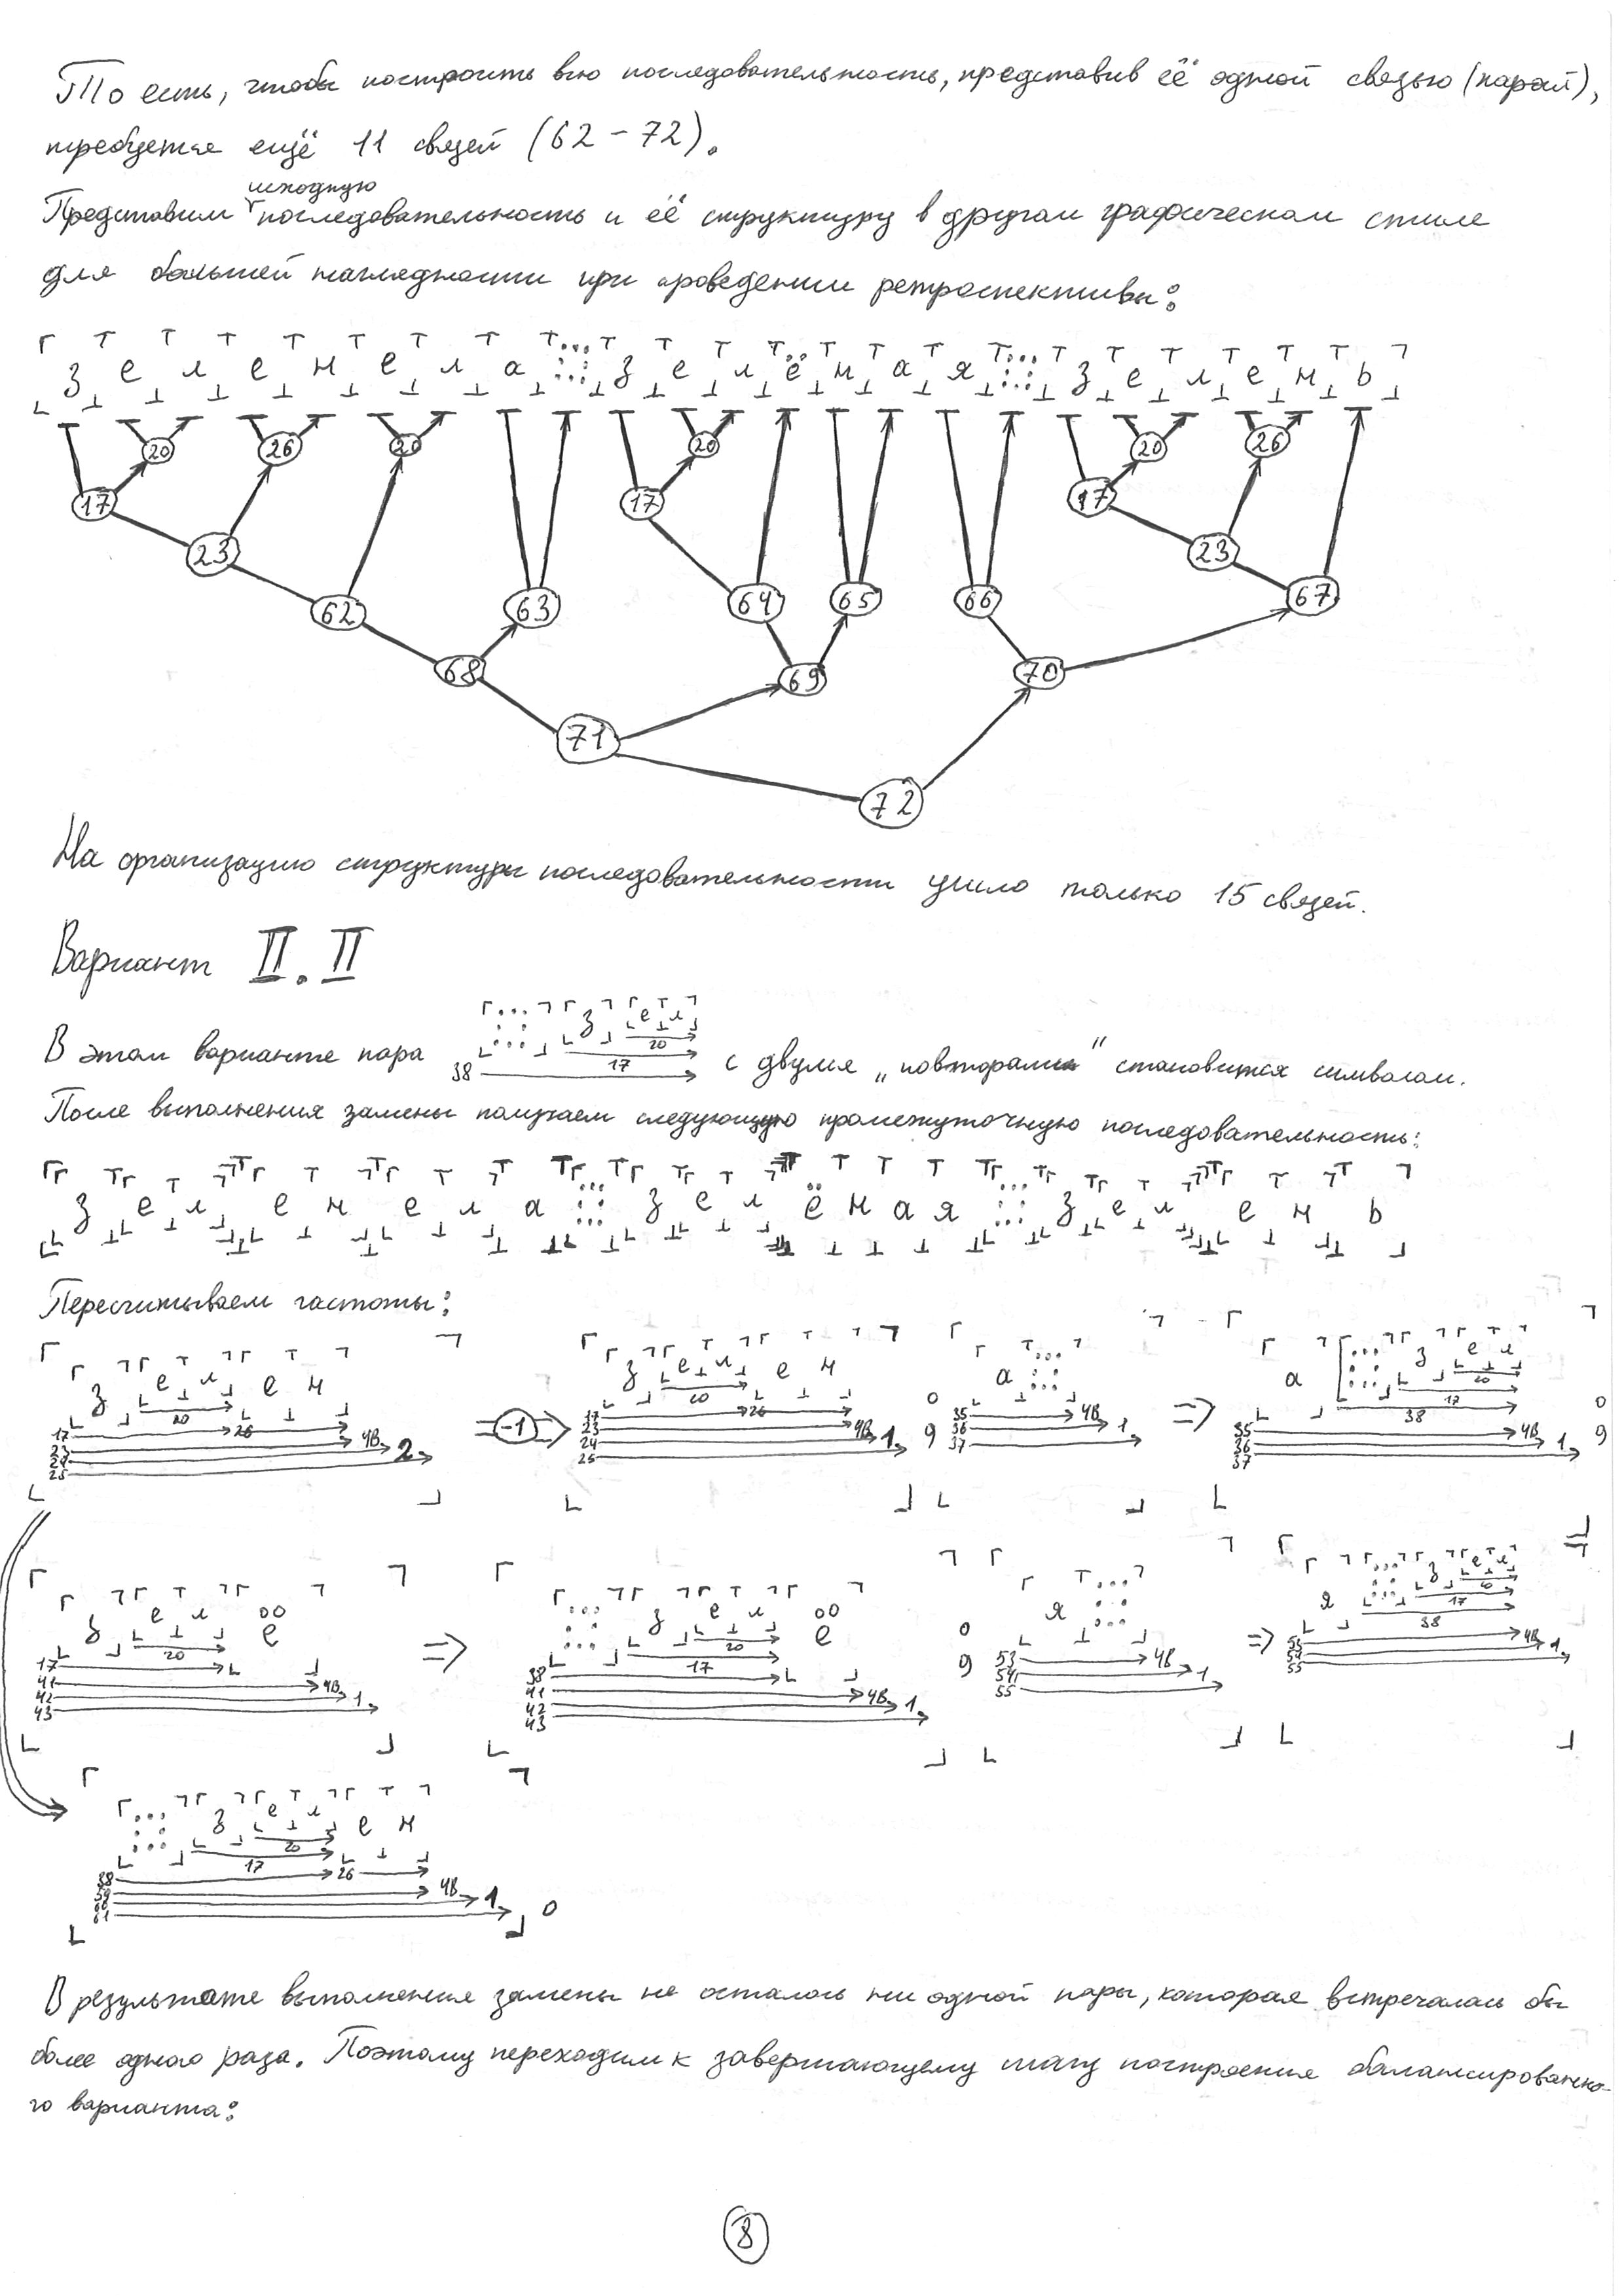 То есть, чтобы построить всю последовательность, представив её одной связью (парой),
требуется ещё 11 связей (62 – 72).
исходную
Представим последовательность и её структуру в другом графическом стиле
для большей наглядности при проведении ретроспективы:
з е л е н е л а з е л ё н а я з е л е н ь
20 26 20 20 20 26
17 17 17
23 23
62 63 64 65 66 67
68 69 70
71
72
На организацию структуры последовательности ушло только 15 связей.
Вариант II.II
з е л
20
В этом варианте пара 38 17 с двумя „повторами" становится символом.
После выполнения замены получаем следующую промежуточную последовательность:
з е л е н е л а з е л ё н а я з е л е н ь
Пересчитываем частоты:
з е л е н
20
17 26
23 ЧВ 2
24
25
=(-1)=>
з е л е н
20
17 26
23 ЧВ 1
24
25
0
9
а
35 ЧВ 1
36
37
=>
а з е л
20
17
38
35 ЧВ 1
36
37
0
9
з е л ё
20
17
41 ЧВ 1
42
43
=>
з е л ё
20
17
38
41 ЧВ 1
42
43
0
9
я
53 ЧВ 1
54
55
=>
я з е л
20
17
38
53 ЧВ 1
54
55
з е л е н
20
17 26
38
59 ЧВ 1
60
61
0
В результате выполнения замены не осталось ни одной пары, которая встречалась бы
более одного раза. Поэтому переходим к завершающему шагу построения балансированно-
го варианта:
8